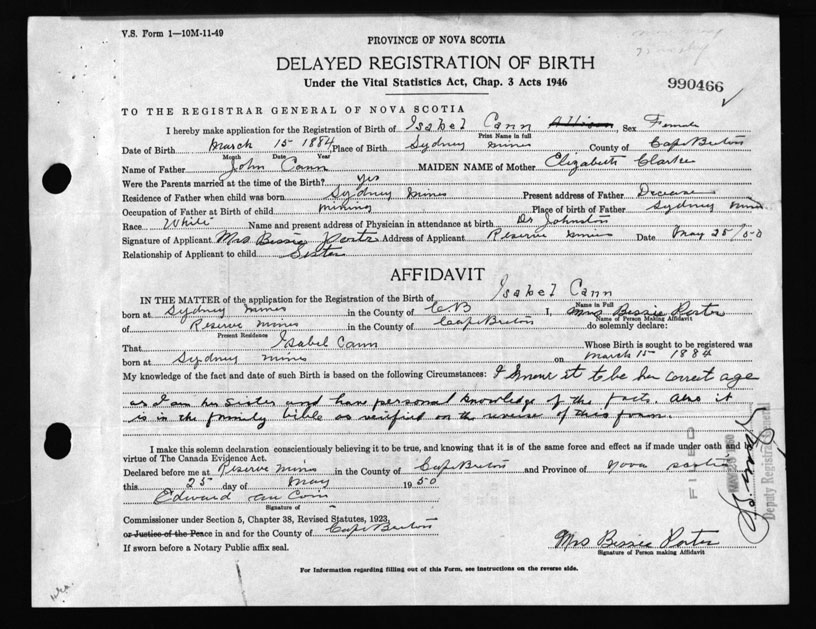 V.S. Form 1—10M-11-49
PROVINCE OF NOVA SCOTIA
DELAYED REGISTRATION OF BIRTH
Under the Vital Statistics Act, Chap. 3 Acts 1946
990466
TO THE REGISTRAR GENERAL OF NOVA SCOTIA
I hereby make application for the Registration of Birth of Isabel Cann Allison, Sex Female
Print Name in full
Date of Birth March 15 1884 Place of Birth Sydney mines County of Cape Breton
Month Date Year
Name of Father John Cann MAIDEN NAME of Mother Elizabeth Clarke
Were the Parents married at the time of the Birth? yes
Residence of Father when child was born Sydney mines Present address of Father Decease
Occupation of Father at Birth of child mining Place of birth of Father Sydney mines
Race White Name and present address of Physician in attendance at birth Dr Johnston
Signature of Applicant Mrs Bessie Porter Address of Applicant Reserve mines Date May 25/50
Relationship of Applicant to child Sister
AFFIDAVIT
IN THE MATTER of the application for the Registration of the Birth of Isabel Cann
Name in Full
born at Sydney mines in the County of C B I, Mrs Bessie Porter
Name of Person Making Affidavit
of Reserve mines in the County of Cape Breton do solemnly declare:
Present Residence
That Isabel Cann Whose Birth is sought to be registered was
born at Sydney mines on March 15 1884
My knowledge of the fact and date of such Birth is based on the following Circumstances: I know it to be her correct age
as I am her sister and have personal knowledge of the facts. Also it
is in the family bible as verified on the reverse of this form.
I make this solemn declaration conscientiously believing it to be true, and knowing that it is of the same force and effect as if made under oath and by
virtue of The Canada Evidence Act.
Declared before me at Reserve mines in the County of Cape Breton and Province of Nova Scotia
this 25 day of May 1950
Edward
Signature of
Commissioner under Section 5, Chapter 38, Revised Statutes, 1923,
or Justice of the Peace in and for the County of Cape Breton
If sworn before a Notary Public affix seal.
Mrs Bessie Porter
Signature of Person making Affidavit
For information regarding filling out of this Form, see instructions on the reverse side.
FILED
Deputy Registrar General